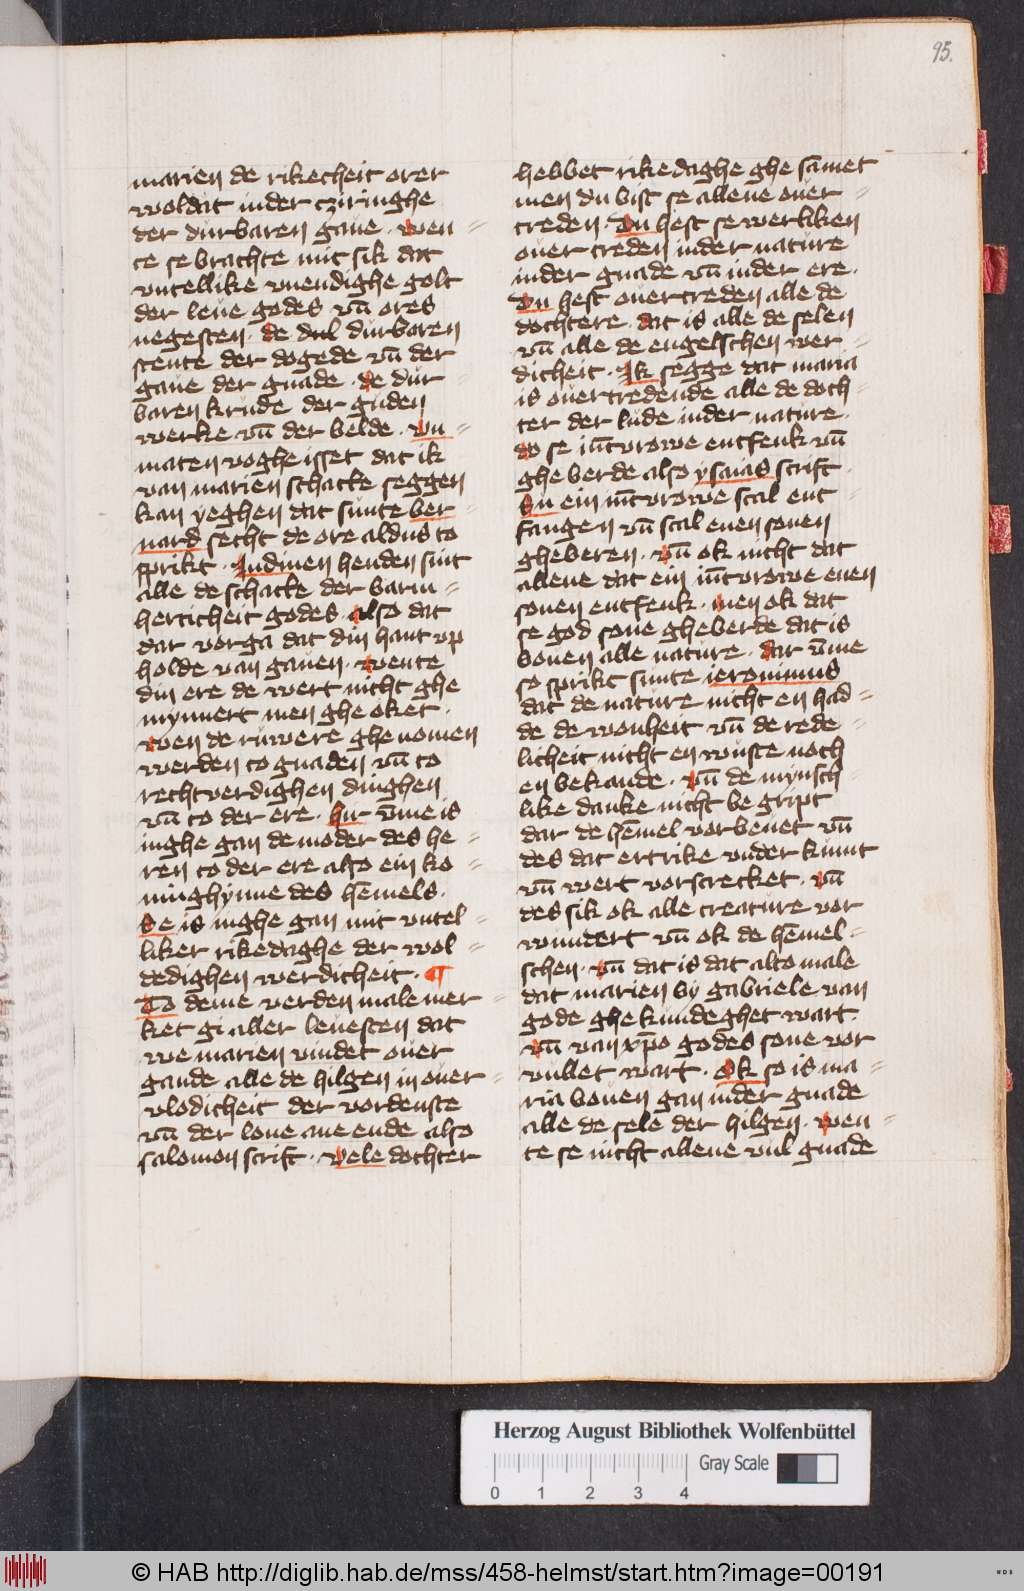 95.
marien de rikecheit orer
woldat in der cziringhe
der durbaren gaue · wen=
te se brachte mit sik dat
vntellike vnendighe golt
der leue godes vn̄ ores
negesten · de dul durbaren
stente der dogede vn̄ der
gaue der gnade · de dur=
baren krude der guden
werke vn̄ der belde · vn=
maten voghe isset dat ik
van marien schatte seggen
kan yeghen dat sunte ber
nard secht de ore aldus to
sprikt · In dinen henden sint
alle de schatte der barm=
herticheit godes · also dat
dar vorga dat din hant vp
holde van gauen · wente
din ere de wert nicht ghe
mynnert men ghe oket ·
wen de ruwere ghe nomen
werden to gnaden vn̄ to
rechtverdighen dinghen
vn̄ to der ere · hir vm̄e is
inghe gan de moder des he=
ren to der ere also ein ko=
ninghynne des hem̄els ·
Se is inghe gan mit vntel=
liker rikedaghe der wol=
dedighen werdicheit · ¶
To deme verden male mer=
ket gi aller leuesten dat
we marien vindet ouer
gande alle de hilgen in ouer=
vlodicheit der vordenste
vn̄ der loue ane ende also
salomon scrift · vele dochter
hebbet rikedaghe ghe sāmet
men du bist se allene ouer=
treden · Du hest se werliken
ouer treden in der nature
in der gnade vn̄ in der ere ·
Du hest ouertreden alle de
dochtere · dat is alle de selen
vn̄ alle de engelschen wer=
dicheit · Ik segge dat maria
is ouertredende alle de doch=
ter der lude in der nature ·
do se iūcvrowe entfenk vn̄
ghe berde also ysaias scrift ·
Su ein iūcvrowe scal ent=
fangen vn̄ scal enen sonen
gheberen · vn̄ ok nicht dat
allene dat ein iūcvrowe enen
sonen entfenk · men ok dat
se god sone gheberde dat is
bouen alle nature · dar vm̄e
so sprikt sunte ieronimus
dat de nature nicht en had=
de de wonheit vn̄ de rede=
licheit nicht en wuste noch
en bekande · vn̄ de mynsch=
like danke nicht be gript
dar de hem̄el vor beuet vn̄
des dat ertrike vnder kumt
vn̄ wert vorscrecket · vn̄
des sik ok alle creature vor
wundert vn̄ ok de hem̄el=
schen · vn̄ dat is dat alto male
dat marien by gabriele van
gode ghe kundeghet wart
vn̄ van xp̄o godes sone vor
vullet wart · Ok so is ma=
ria bouen gan in der gnade
alle de sele der hilgen · wen=
te se nicht allene vul gnade
Herzog August Bibliothek Wolfenbüttel
Gray Scale
0 1 2 3 4
© HAB http://diglib.hab.de/mss/458-helmst/start.htm?image=00191